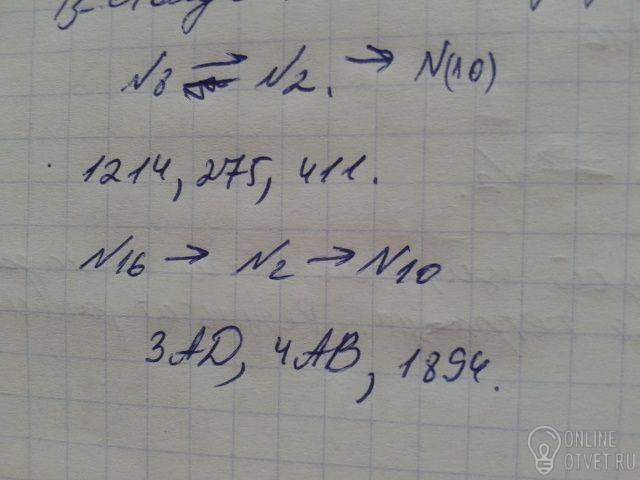 N8 ⇌ N2. → N(10)
1214, 275, 411.
N16 → N2 → N10
3AD, 4AB, 1894.
ONLINE
OTVET.RU